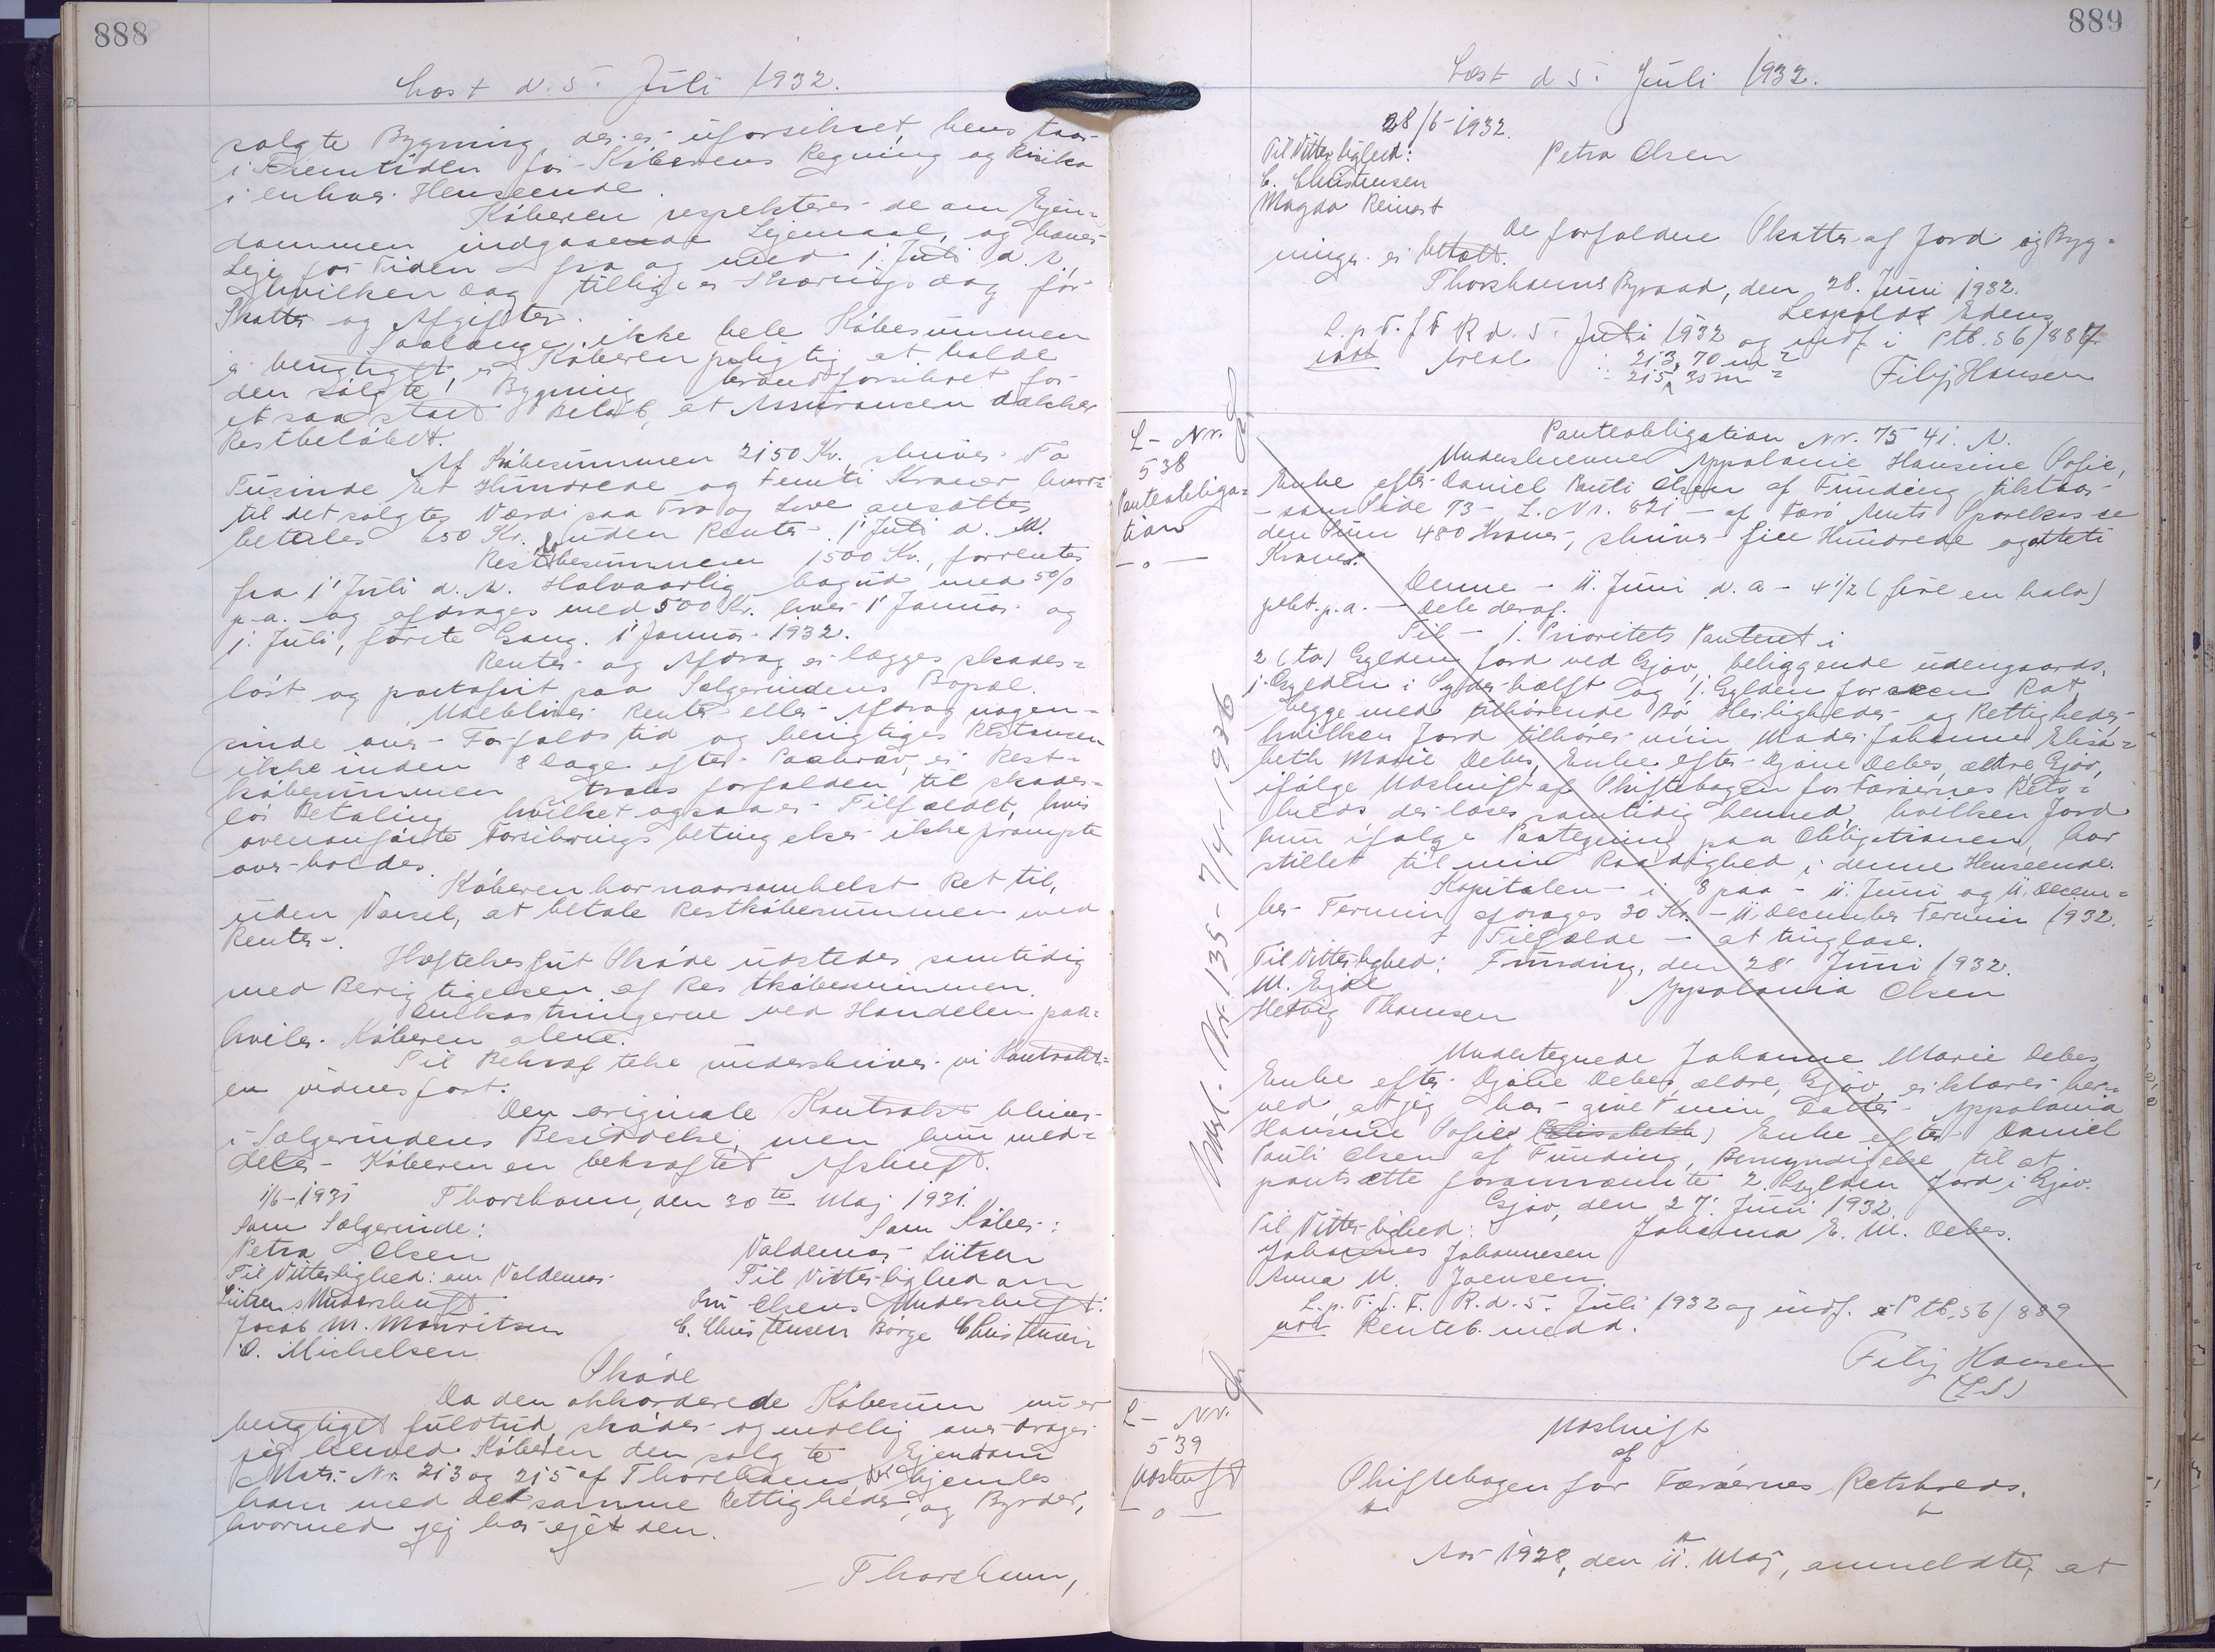 888
Læst d. 5. Juli 1932.
solgte Bygning, der er uforsikret, hens taar
i Fremtiden for Køberens Regning og Risiko
i enhver Henseende.
Køberen respekterer de om Ejen=
dommen indgaaende Lejemaal, og hæver
Leje for Tiden fra og med 1. Juli d. A.
hvilken Dag tillige er Skæringsdag for
Skatter og Afgifter.
Saalænge ikke hele Købesummen
er berigtiget, er Køberen pligtig at holde
den solgte Bygning brandforsikret for
et saa stort Beløb, at Assurancen dækker
Restbeløbet.
Af Købesummen 2150 Kr., skriver To
Tusinde Et Hundrede og Femti Kroner hvor=
til det solgtes Værdi paa Tro og Love ansættes
betales 650 Kr. uden Rente 1' Juli d. A.
Restkøbesummen 1500 Kr., forrentes
fra 1' Juli d. A. Halvaarlig bagud med 5%
p.a. og afdrages med 500 Kr. hver 1' Januar og
1. Juli, første Gang 1' Januar 1932.
Renter og Afdrag er lægges skades=
løst og portofrit paa Sælgerindens Bopæl.
Udebliver Renter eller Afdrag nogen=
sinde over Forfalds tid og berigtiges Restancen
ikke inden 8 Dage efter Paakrav, er Rest=
købesummen straks forfalden til skades=
løs Betaling hvilket ogsaa er Tilfældet, hvis
ovenanførte Forsikringsbetingelser ikke prompte
overholdes.
Køberen har naarsomhelst Ret til,
uden Varsel, at betale Restkøbesummen med
Renter.
Hæftelsesfrit Skøde udstedes samtidig
med Berigtigelsen af Restkøbesummen.
Omkostningerne ved Handelen paa=
hviler Køberen alene.
Til Bekræftelse underskriver vi Kontrakt=
en vidnesfast.
Den originale Kontrakt bliver
i Sælgerindens Besiddelse, men hun med=
deler Køberen en bekræftet Afskrift.
1/6-1931 Thorshavn, den 30te Maj 1931.
Som Sælgerinde: Som Køber:
Petra Olsen Valdemar Lützen
Til Vitterlighed: om Valdemar Til Vitterlighed om
Lützens Underskrift Fru Olsens Underskrift:
Jacob M. Mouritsen C. Christensen Børge Christensen
O. Michelsen
Skøde
Da den akkorderede Købesum nu er
berigtiget fuldtud, skøder og endelig overdrager
jeg herved Køberen den solgte Ejendom
Matr. Nr. 213 og 215 af Thorshavn og hjemles
ham med de samme Rettigheder og Byrder,
hvormed jeg har ejet den.
Thorshavn,
889
Læst d 5. Juli 1932.
28/6-1932.
Til Vitterlighed: Petra Olsen
C. Christensen
Magda Reinert
De forfaldne Skatter af Jord og Byg=
ninger er betalt.
Thorshavns Byraad, den 28. Juni 1932.
Leopoldt Edens
L. p. T. f. F. R d. 5. Juli 1932 og indf. i Ptb. 56/887
Areal : 213, 70 m2
: 215, 35 m2 Filip Hansen
L- Nr.
538
Panteobliga=
tion
-o-
Udsl. Nr. 135- 7/4-1936
Panteobligation Nr. 7541. A.
Underskrevne Appolonie Hansine Sofie,
Enke efter Daniel Pauli Olsen af Funding tilstaar
- som Side 73 - L. Nr. 821 - af Færø Amts Sparekasse
den Sum 480 Kroner, skriver fire Hundrede og otteti
Kroner.
Denne - 11. Juni d. a - 4 1/2 (fire en halv)
pCt. p.a. - Dele deraf.
Til - 1. Prioritets Panteret i
2 (to) Gylden Jord ved Gjov, beliggende udengaards,
1. Gylden i Sydes-hælft og 1. Gylden for Rot,
begge med tilhørende Bø Herligheder og Rettigheder,
hvilken Jord tilhører min Moder Johanne Elisa=
beth Marie Debes, Enke efter Djone Debes, ældre Gjov,
ifølge Udskrift af Skiftebogen for Færøernes Rets=
kreds der læses samtidig hermed, hvilken Jord
hun ifølge Paategning paa Obligationen, har
stillet til min Raadighed i denne Henseende.
Kapitalen - i 8 paa - 11. Juni og 11. Decem=
ber Termin afdrages 30 Kr. - 11. December Termin 1932.
I Tilfælde - at tinglæse.
Til Vitterlighed: Funding, den 28' Juni 1932.
M. Ejdel Appolonia Olsen
Hedvig Thomsen
Undertegnede Johanne Marie Debes
Enke efter Djone Debes, ældre, Gjov, erklærer her=
ved, at jeg har givet min Datter Appolonia
Hansine Sofie (Elisabeth) Enke efter Daniel
Pauli Olsen af Funding, Bemyndigelse til at
pantsætte forannævnte 2. Gylden Jord i Gjov.
Gjov, den 27. Juni 1932
Til Vitterlighed: Johanna E. M. Debes.
Johannes Johannesen
Anna M. Joensen.
L. p. T. f. F. R. d. 5. Juli 1932 og indf. i Ptb. 56/889
Renteb. medd.
Filip Hansen
(L.S)
L- Nr.
539
Udskrift
-o-
Udskrift
af
Skiftebogen for Færøernes Retskreds.
Aar 1928, den 11. Maj, anmeldtes, at